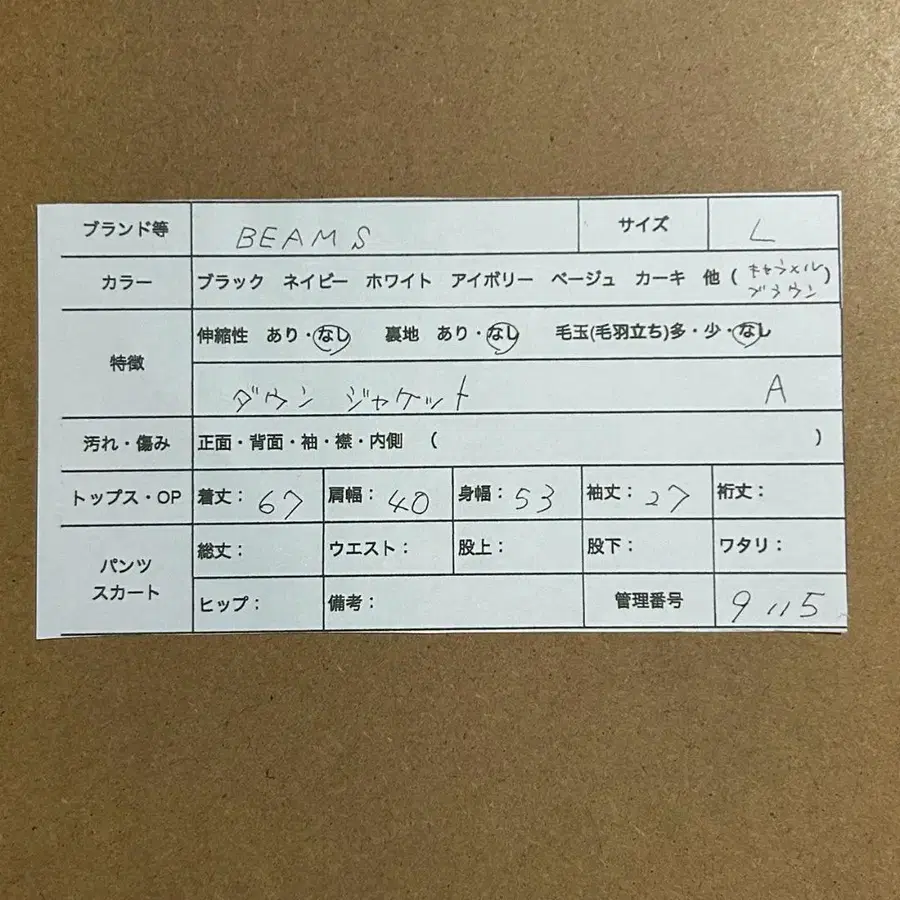 ブランド等 BEAMS サイズ L
カラー ブラック ネイビー ホワイト アイボリー ベージュ カーキ 他(キャラメルブラウン)
特徴 伸縮性 あり・なし 裏地 あり・なし 毛玉(毛羽立ち)多・少・なし
ダウン ジャケット A
汚れ・傷み 正面・背面・袖・襟・内側 ( )
トップス・OP 着丈: 67 肩幅: 40 身幅: 53 袖丈: 27 裄丈:
パンツ スカート 総丈: ウエスト: 股上: 股下: ワタリ:
ヒップ: 備考: 管理番号 9115